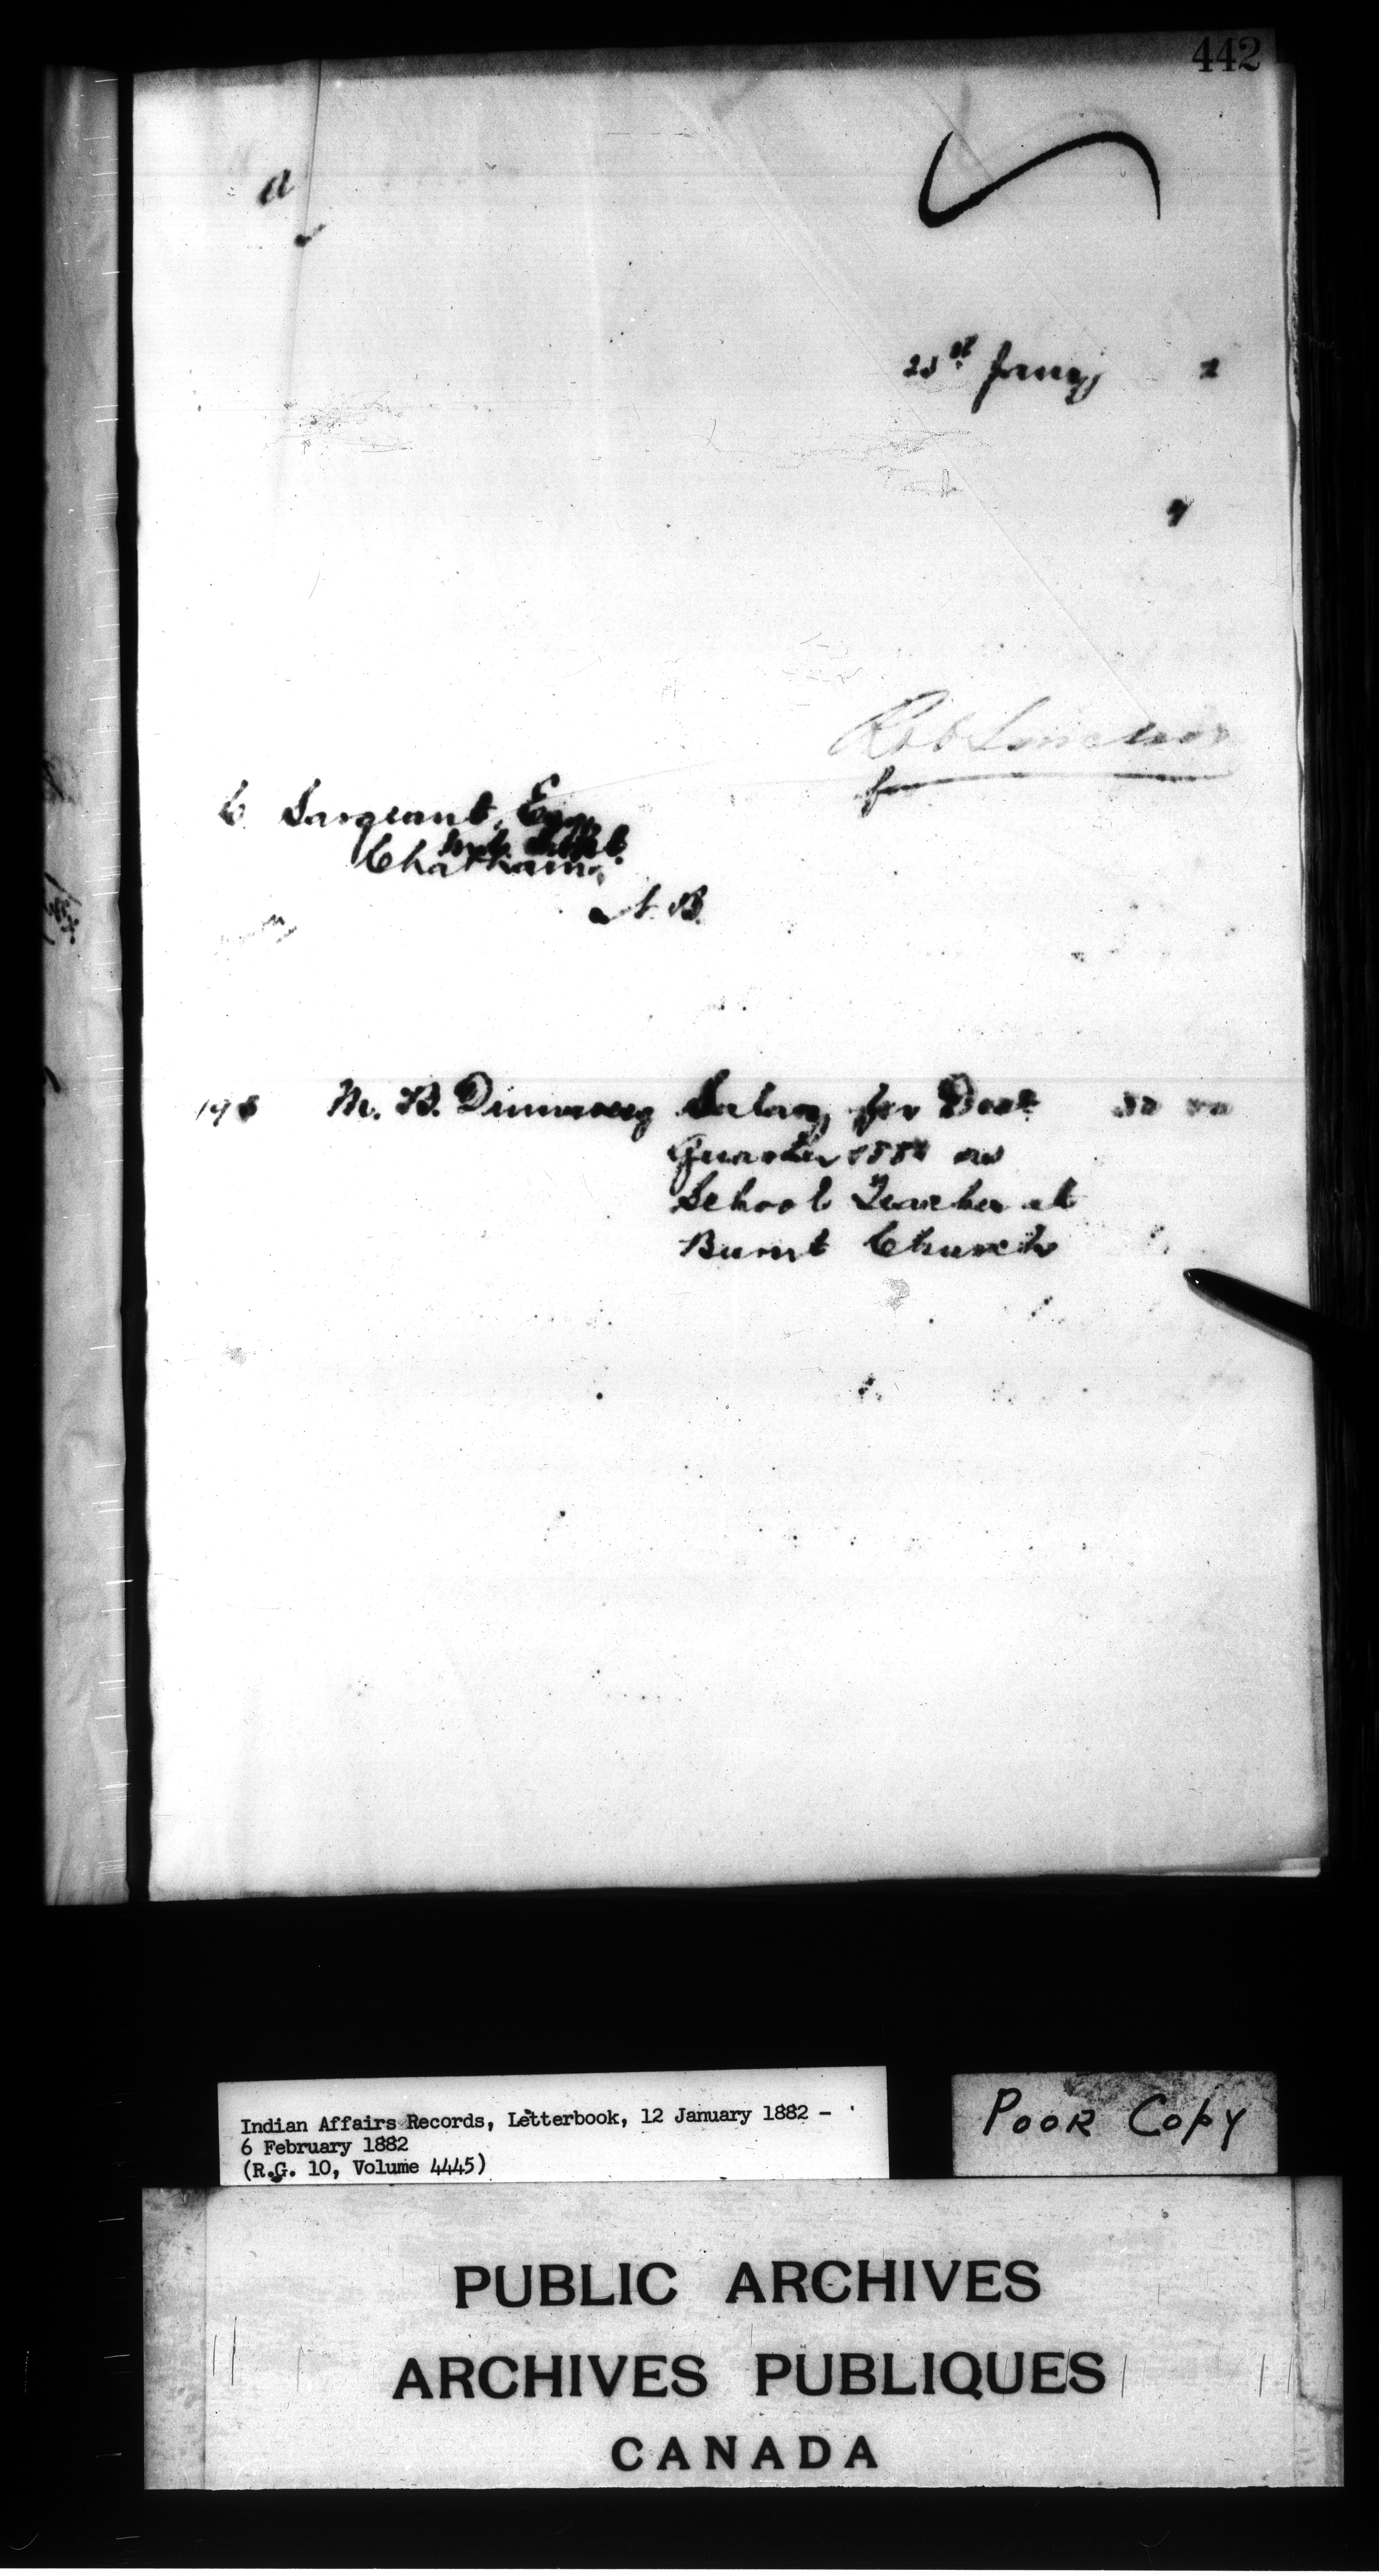 442
a
Jany 2
Rob Sinclair
for
C. Sargeant, Esq.
Chatham,
N.B.
M. B. Salary for Dect
Quarter as
School Teacher at
Burnt Church
Indian Affairs Records, Letterbook, 12 January 1882 -
6 February 1882
(R.G. 10, Volume 4445)
POOR COPY
PUBLIC ARCHIVES
ARCHIVES PUBLIQUES
CANADA